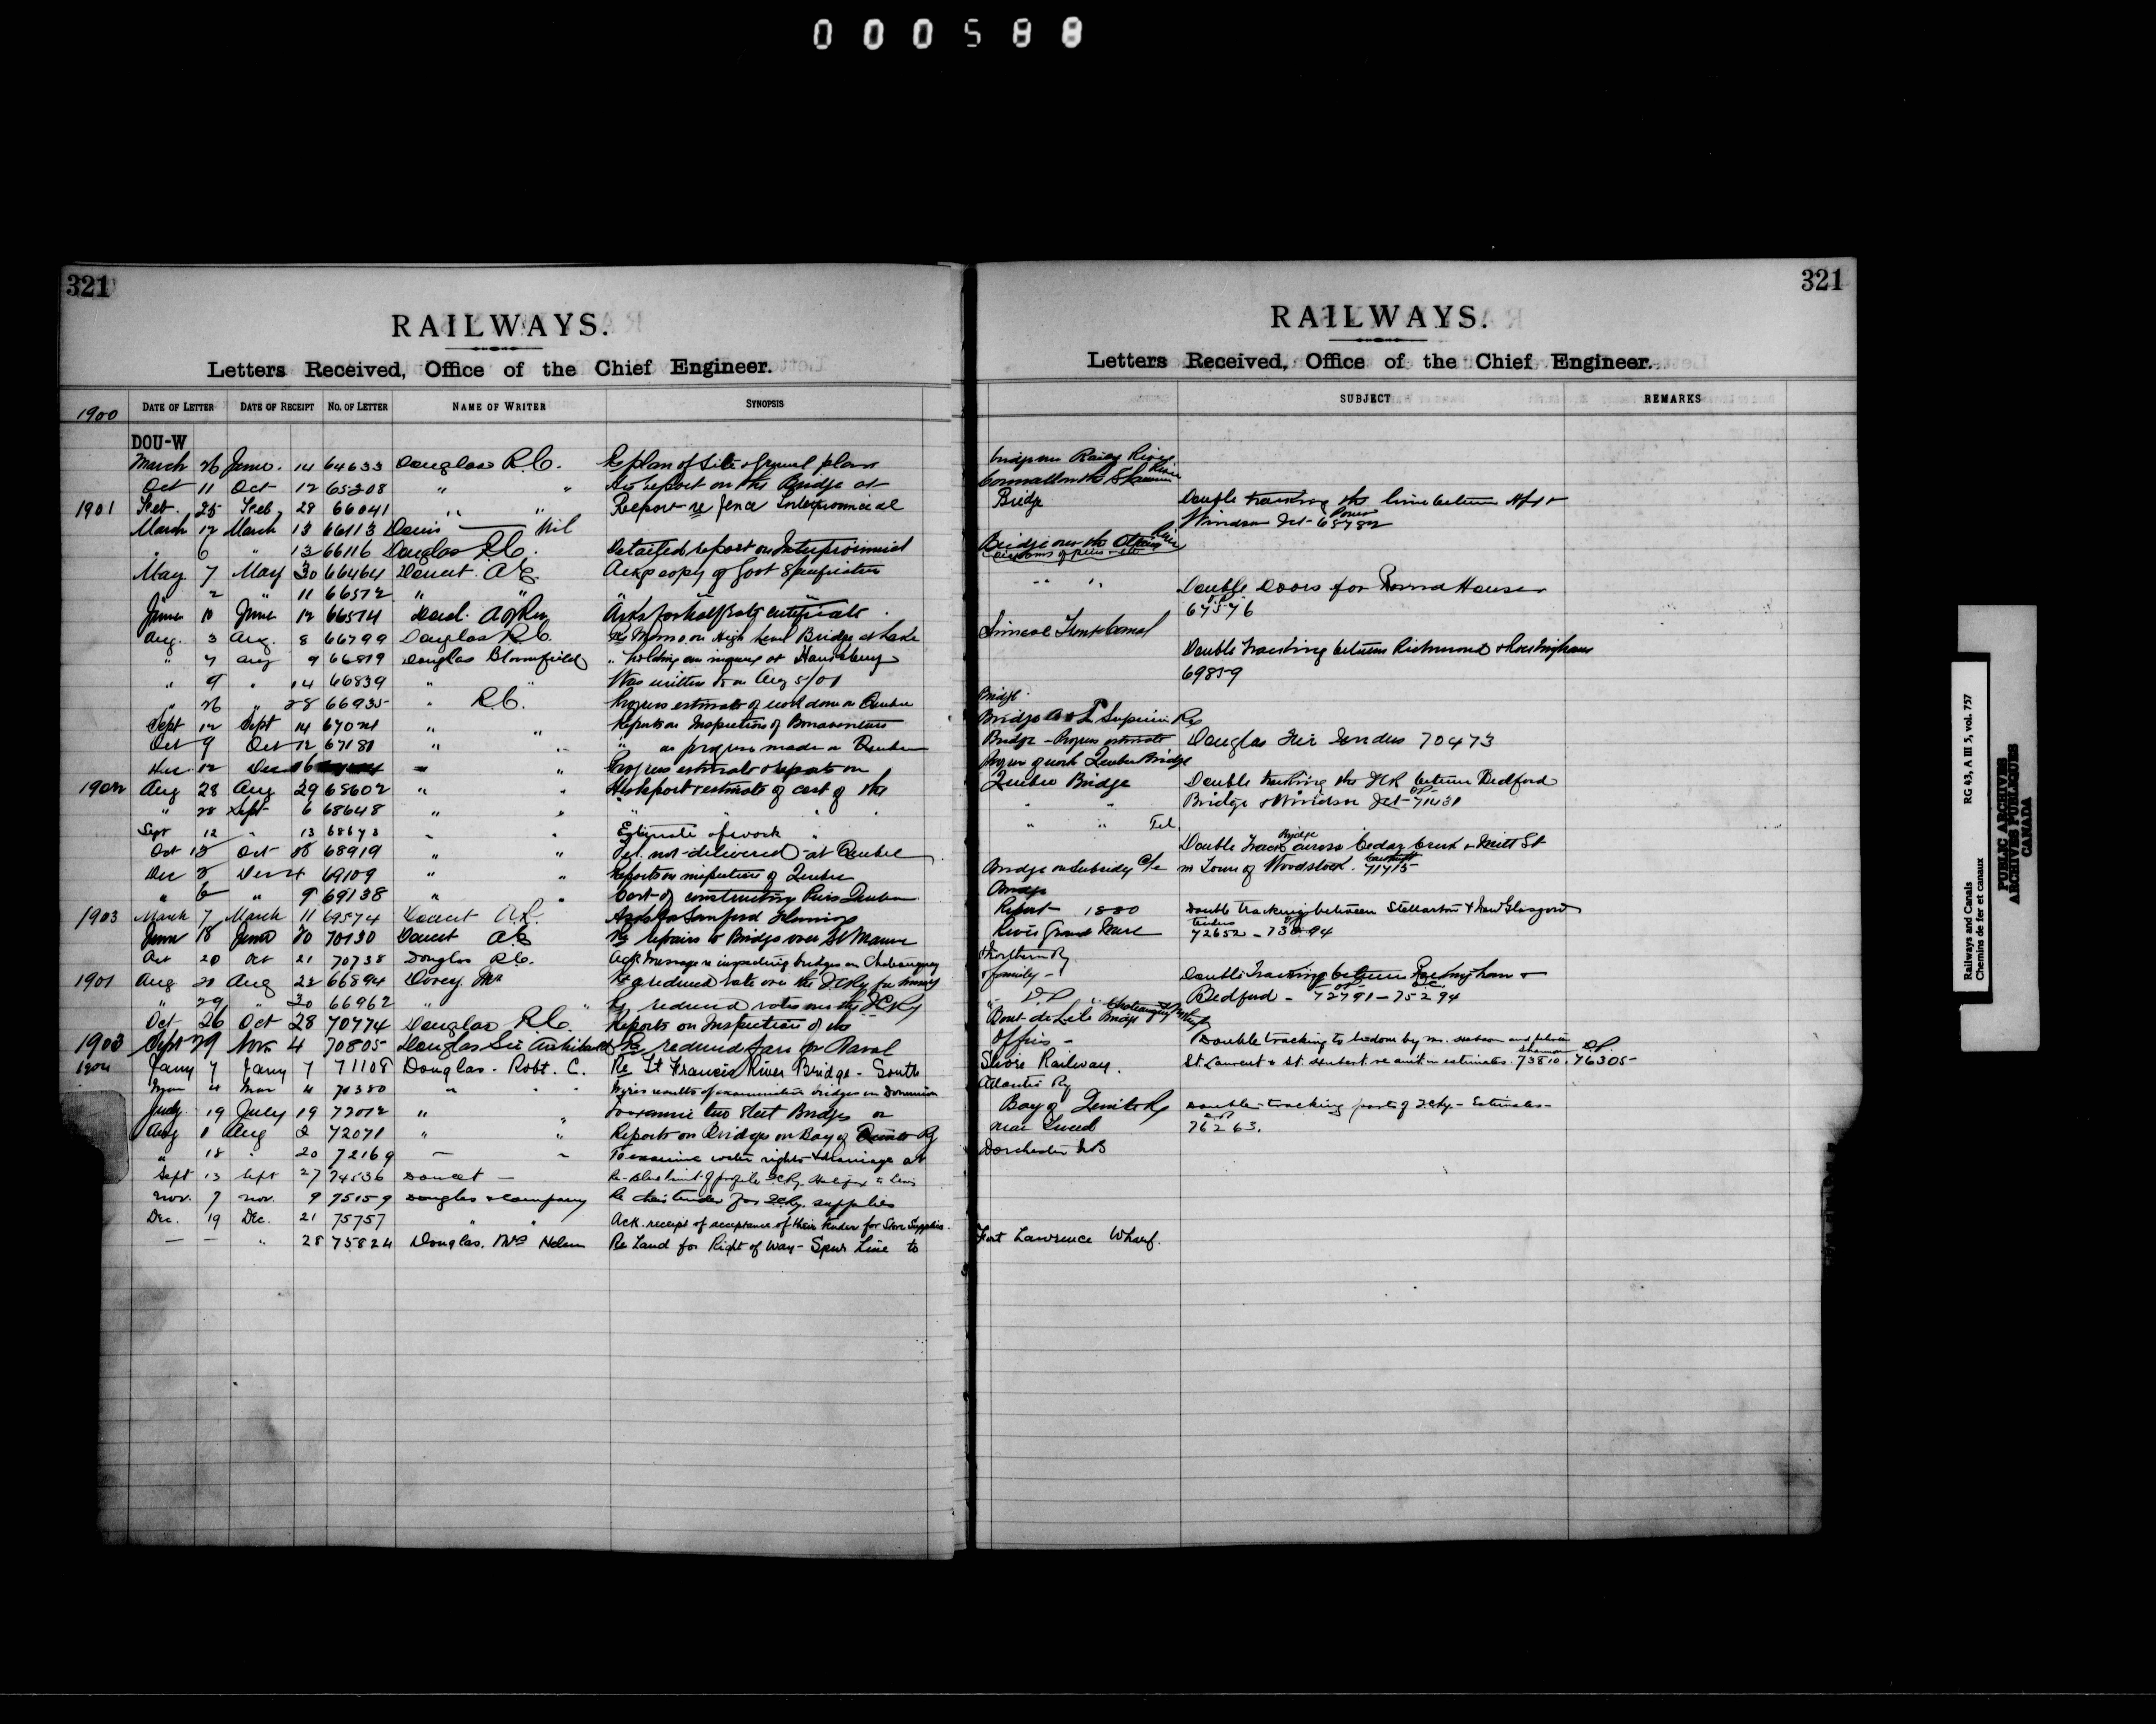 000588
321
RAILWAYS.
Letters Received, Office of the Chief Engineer.
1900 DATE OF LETTER DATE OF RECEIPT NO. OF LETTER NAME OF WRITER SYNOPSIS
DOU-W
March 26 June 14 64633 Douglas R.C. Re plan of Site & General plan
Oct 11 Oct 12 65208 " " His report on the Bridge at
1901 Feb. 25 Feby 28 66041 " " Report re Interprovincial
March 12 March 13 66113 Nil
" 6 " 13 66116 Douglas R.C. Detailed report on Interprovincial
May 7 May 30 66464 Doucet A.E. Ackg copy of Govt Specification
" 2 " 11 66572 " "
June 10 June 12 66574 Asks for half rate certificate
Aug. 3 Aug. 8 66799 Douglas R.C. His Memo on High Level Bridge at
" 7 Aug 9 66819 Douglas Bloomfield " holding an inquiry at
" 9 " 14 66839 " " Was written to on Aug 5/01
" 26 " 28 66935 " R.C. Progress estimate of work done on Quebec
Sept 12 Sept 14 67021 " " Reports on Inspection of Bonaventure
Oct 9 Oct 12 67181 " " " on progress made on Quebec
Dec 12 Dec 16 " " Progress estimate & report on
1902 Aug 28 Aug 29 68602 " " His Report & estimate of cost of the
" 28 Sept 6 68648 " " " " "
Sept 12 " 13 68673 " " Estimate of work "
Oct 18 Oct 18 68919 " " Tel. not delivered at Quebec
Dec 2 Dec 4 69109 " " Reports on inspection of Quebec
" 6 " 9 69138 " " Cost of constructing Piers Quebec
1903 March 7 March 11 69574 Doucet A.E. Asks for Sandford Fleming's
June 18 June 20 70130 Doucet A.E. Re repairs to Bridge over St Maurice
Oct 20 Oct 21 70738 Douglas R.C. Ack. Message re inspecting bridges on Chateauguay
1901 Aug 20 Aug 22 66894 Dovey Mr Re reduced rate over the ICRy for
" 29 " 30 66962 " " Re reduced rates over the ICRy
Oct 26 Oct 28 70774 Douglas R.C. Reports on Inspection of the
1903 Sept 29 Nov. 4 70805 Douglas Sir Archibald Re reduced fare for Naval
1904 Jany 7 Jany 7 71108 Douglas. Robt. C. Re St Francis River Bridge - South
Mar 4 Mar 4 71380 " " " results of examination bridges on Dominion
July 19 July 19 72012 " " To examine two Steel Bridges on
Aug 1 Aug 2 72071 " " Reports on Bridges on Bay of Quinte Ry
" 18 " 20 72169 — " To examine water rights & drainage at
Sept 13 Sept 27 74536 Doucet — Re- Blue print of profile I.C.Ry.
Nov. 7 Nov. 9 75159 Douglas & Company Re their tender for I.C.Ry. supplies
Dec. 19 Dec. 21 75757 " " Ack. receipt of acceptance of their tender for Store Supplies.
— — " 28 75824 Douglas. Mrs Helen Re Land for Right of Way - Spur Line to
321
RAILWAYS.
Letters Received, Office of the Chief Engineer.
SUBJECT REMARKS
bridge over Rainy River
Cornwall River
Bridge Double tracking the line between Hfx &
Windsor Jct - 65782
Bridge over the Ottawa River
" " Double Doors for Round House
67576
Canal
Double tracking between Richmond &
69859
Bridge
Bridge & L. Superior Ry
Bridge - Progress estimate Douglas Fir Tenders 70473
Progress of work Quebec Bridge
Quebec Bridge Double tracking the ICR between Bedford
" " Bridge & Windsor Jct - 71431
" " Tel.
Double Track Bridge across Cedar Creek & Mill St
Bridge on Subsidy a/c in Town of Woodstock. 71715
Bridge
Report 1880 Double tracking between Stellarton & New Glasgow
River Grand Mere tenders 72652 - 73894
& Northern Ry.
& family - Double Tracking between Rockingham &
" D.P " Bedford - 72791 - 75294
Bout de L'Ile Bridge Chateauguay & Northern Ry
Officers - Double tracking to be done by
Shore Railway. St. Laurent & St. Hubert re amt. in estimates. 73810. 76305
Atlantic Ry
Bay of Quinte Ry Double-tracking part of I.C.Ry. - Estimates -
near Tweed 76263.
Dorchester N.B
Fort Lawrence Wharf.
Railways and Canals
Chemins de fer et canaux
RG 43, A III 5, vol. 757
PUBLIC ARCHIVES
ARCHIVES PUBLIQUES
CANADA